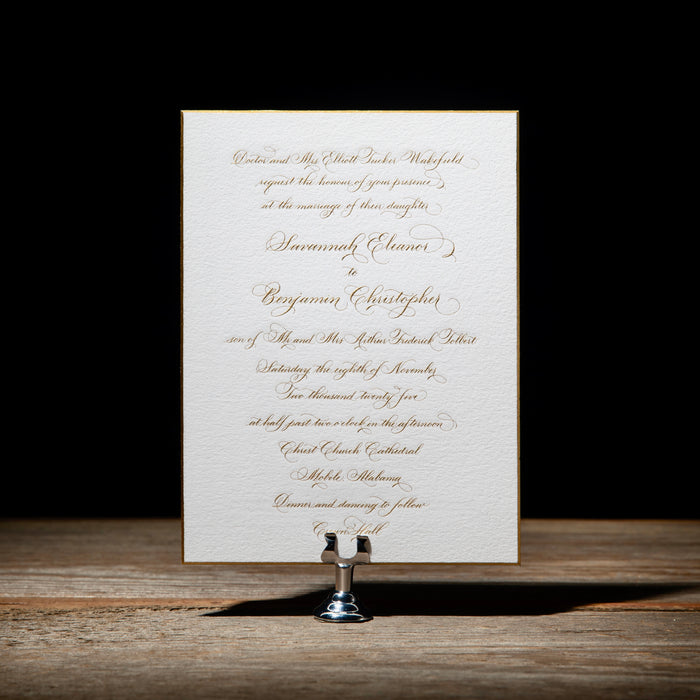 Doctor and Mrs Elliott Tucker Wakefield
request the honour of your presence
at the marriage of their daughter
Savannah Eleanor
to
Benjamin Christopher
son of Mr and Mrs Arthur Frederick Tolbert
Saturday the eighth of November
Two thousand twenty five
at half past two o'clock in the afternoon
Christ Church Cathedral
Mobile Alabama
Dinner and dancing to follow
Crown Hall